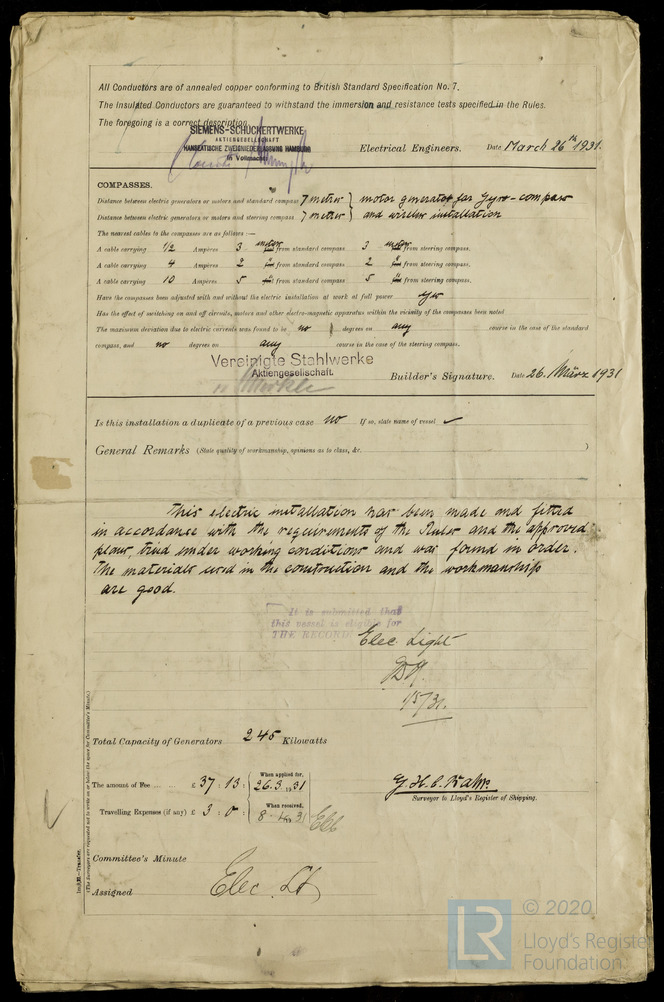 All Conductors are of annealed copper conforming to British Standard Specification No. 7.
The Insulated Conductors are guaranteed to withstand the immersion and resistance tests specified in the Rules.
The foregoing is a correct description.
SIEMENS-SCHUCKERTWERKE
AKTIENGESELLSCHAFT
HANSEATISCHE ZWEIGNIEDERLASSUNG HAMBURG
In Vollmacht
Electrical Engineers. Date March 26th 1931.
COMPASSES.
Distance between electric generators or motors and standard compass 7 meter } motor generator for Gyro-compass
Distance between electric generators or motors and steering compass 7 meter } and wireless installation
The nearest cables to the compasses are as follows :—
A cable carrying 1/2 Ampères 3 meter from standard compass 3 meter from steering compass.
A cable carrying 4 Ampères 2 " from standard compass 2 " from steering compass.
A cable carrying 10 Ampères 5 " from standard compass 5 " from steering compass.
Have the compasses been adjusted with and without the electric installation at work at full power yes
Has the effect of switching on and off circuits, motors and other electro-magnetic apparatus within the vicinity of the compasses been noted
The maximum deviation due to electric currents was found to be no degrees on any course in the case of the standard
compass, and no degrees on any course in the case of the steering compass.
Vereinigte Stahlwerke
Aktiengesellschaft.
Builder's Signature. Date 26. März 1931
Is this installation a duplicate of a previous case no If so, state name of vessel ✓
General Remarks (State quality of workmanship, opinions as to class, &c. )
This electric installation has been made and fitted
in accordance with the requirements of the Rules and the approved
plans, tried under working conditions and was found in order.
The materials used in the construction and the workmanship
are good.
It is submitted that
this vessel is eligible for
THE RECORD. Elec. Light
1/5/31.
Total Capacity of Generators 245 Kilowatts
The amount of Fee ... £ 37 : 13 : When applied for, 26.3.1931
Travelling Expenses (if any) £ 3 : 0 : When received, 8
Surveyor to Lloyd's Register of Shipping.
Committee's Minute
Assigned Elec. Lt
Im. 3,30.—Transfer.
(The Surveyors are requested not to write on or below the space for Committee's Minute.)
LR
© 2020
Lloyd's Register
Foundation